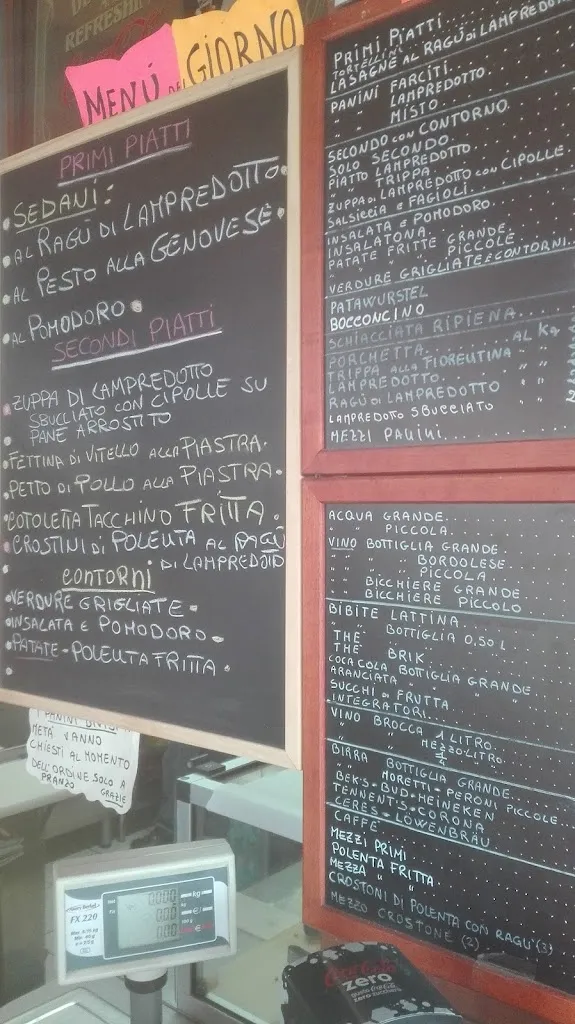 REFRESHIN
MENÚ DEL GIORNO
PRIMI PIATTI
• SEDANI:
• AL RAGÙ DI LAMPREDOTTO.
• AL PESTO ALLA GENOVESE.
• AL POMODORO.
SECONDI PIATTI
• ZUPPA DI LAMPREDOTTO
SBUCLIATO CON CIPOLLE SU
PANE ARROSTITO
• FETTINA DI VITELLO ALLA PIASTRA.
• PETTO DI POLLO ALLA PIASTRA.
• COTOLETTA TACCHINO FRITTA.
• CROSTINI DI POLENTA AL RAGÙ
DI LAMPREDOTTO
CONTORNI
• VERDURE GRIGLIATE.
• INSALATA E POMODORO.
• PATATE - POLENTA FRITTA.
PANINI DIVISI
METÀ VANNO
CHIESTI AL MOMENTO
DELL'ORDINE SOLO A
PRANZO GRAZIE
FX 220
0.00 kg
0.00 €/
0.00
PRIMI PIATTI
TORTELLINI
LASAGNE AL RAGÙ DI LAMPREDOTTO
PANINI FARCITI
" " LAMPREDOTTO
" " MISTO
SECONDO CON CONTORNO
SOLO SECONDO
PIATTO LAMPREDOTTO
" " TRIPPA
ZUPPA DI LAMPREDOTTO CON CIPOLLE
SALSICCIA E FAGIOLI
INSALATA E POMODORO
INSALATONA
PATATE FRITTE GRANDE
" " PICCOLE
VERDURE GRIGLIATE E CONTORNI
PATAWURSTEL
BOCCONCINO
SCHIACCIATA RIPIENA
PORCHETTA AL KG
TRIPPA ALLA FIORENTINA " "
LAMPREDOTTO " "
RAGÙ DI LAMPREDOTTO " "
LAMPREDOTTO SBUCCIATO
MEZZI PANINI
ACQUA GRANDE
" PICCOLA
VINO BOTTIGLIA GRANDE
" " BORDOLESE
" " PICCOLA
" BICCHIERE GRANDE
" BICCHIERE PICCOLO
BIBITE LATTINA
THE BOTTIGLIA 0,50 L
THE BRIK
COCA COLA BOTTIGLIA GRANDE
ARANCIATA " "
SUCCHI DI FRUTTA
INTEGRATORI
VINO BROCCA 1 LITRO
" MEZZO LITRO
" 1/4
BIRRA BOTTIGLIA GRANDE
" " MORETTI-PERONI PICCOLE
BEK'S-BUD-HEINEKEN
TENNENT'S-CORONA
CERES-LÖWENBRÄU
CAFFE'
MEZZI PRIMI
POLENTA FRITTA
MEZZA " "
CROSTONI DI POLENTA CON RAGU' (3)
MEZZO CROSTONE (2)
Coca-Cola
zero